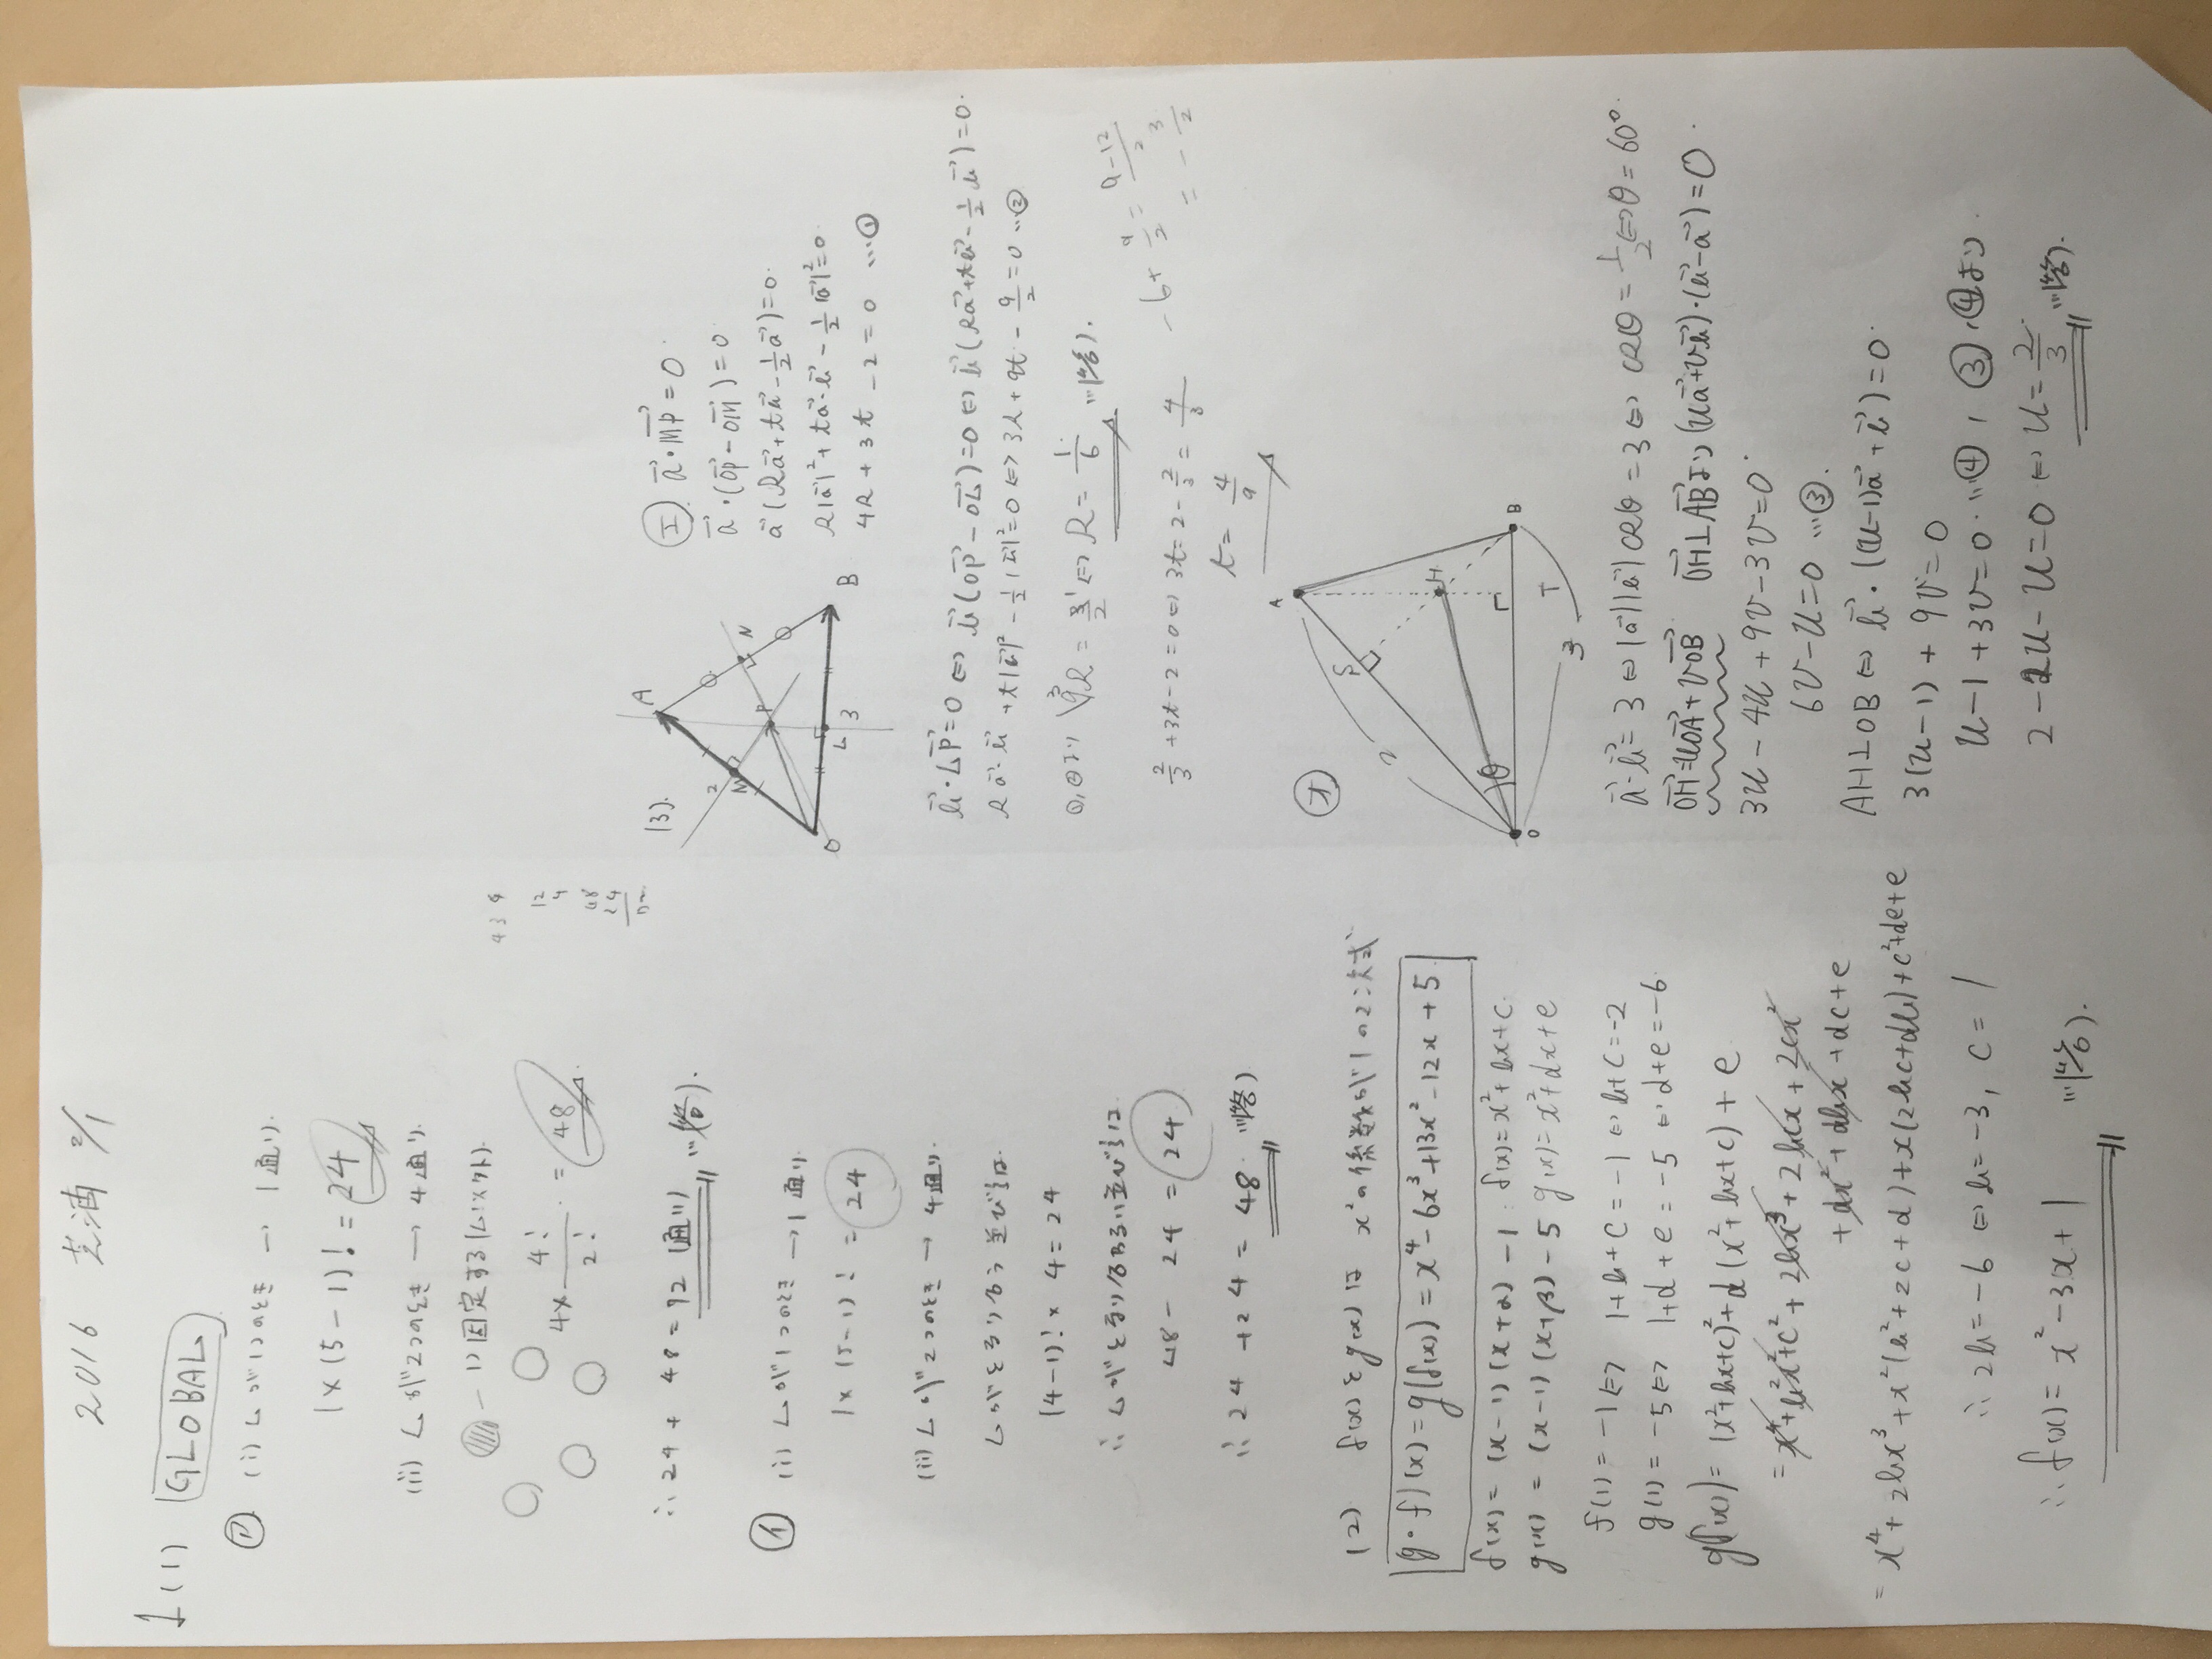 2016 芝浦 2/1
1 (1) GLOBAL
ア (i) Lが1つのとき → 1通り.
1×(5-1)! = 24
(ii) Lが2つのとき → 4通り.
1つ固定する(L以外).
4× 4!/2! = 48
∴ 24 + 48 = 72 (通り) …(答).
イ (i) Lが1つのとき → 1通り.
1×(5-1)! = 24
(ii) Lが2つのとき → 4通り.
Lがとなりあう並び方は
(4-1)! × 4 = 24
∴ Lがとなりあわない並び方は
48 - 24 = 24
∴ 24 + 24 = 48. …(答)
4 3 4
12
4
48
24
72
(2) f(x)とg(x)は x²の係数が1の2次式
(g・f)(x) = g(f(x)) = x⁴-6x³+13x²-12x+5
f(x) = (x-1)(x+α)-1 : f(x)=x²+bx+c.
g(x) = (x-1)(x+β)-5 g(x)=x²+dx+e
f(1) = -1 ⇔ 1+b+c=-1 ⇔ b+c=-2
g(1) = -5 ⇔ 1+d+e=-5 ⇔ d+e=-6
g(f(x)) = (x²+bx+c)²+d(x²+bx+c)+e
= x⁴+b²x²+c²+2bx³+2bcx+2cx²
+dx²+dbx+dc+e
= x⁴+2bx³+x²(b²+2c+d)+x(2bc+db)+c²+dc+e
∴ 2b=-6 ⇔ b=-3, c=1
∴ f(x)=x²-3x+1 …(答).
(3).
A
2
M
P
N
O
L
3
B
エ. a⃗・MP⃗=0.
a⃗・(OP⃗-OM⃗)=0
a⃗(ka⃗+tb⃗-1/2a⃗)=0.
k|a⃗|²+ta⃗・b⃗-1/2|a⃗|²=0.
4k+3t-2=0 …①
b⃗・LP⃗=0 ⇔ b⃗(OP⃗-OL⃗)=0 ⇔ b⃗(ka⃗+tb⃗-1/2b⃗)=0.
ka⃗・b⃗+t|b⃗|²-1/2|b⃗|²=0 ⇔ 3k+9t-9/2=0 …②
①,②より 9k=3/2 ⇔ k=1/6 …(答).
-6+9/2=9-12/2
=-3/2
2/3+3t-2=0 ⇔ 3t=2-2/3=4/3
t=4/9
オ
A
S
H
2
θ
O
T
B
3
a⃗・b⃗=3 ⇔ |a⃗||b⃗|cosθ=3 ⇔ cosθ=1/2 ⇔ θ=60°.
OH⃗=uOA⃗+vOB⃗ OH⃗⊥AB⃗より (ua⃗+vb⃗)・(b⃗-a⃗)=0.
3u-4u+9v-3v=0.
6v-u=0 …③.
AH⊥OB ⇔ b⃗・((u-1)a⃗+vb⃗)=0.
3(u-1)+9v=0
u-1+3v=0. …④, ③,④より
2-2u-u=0 ⇔ u=2/3. …(答).